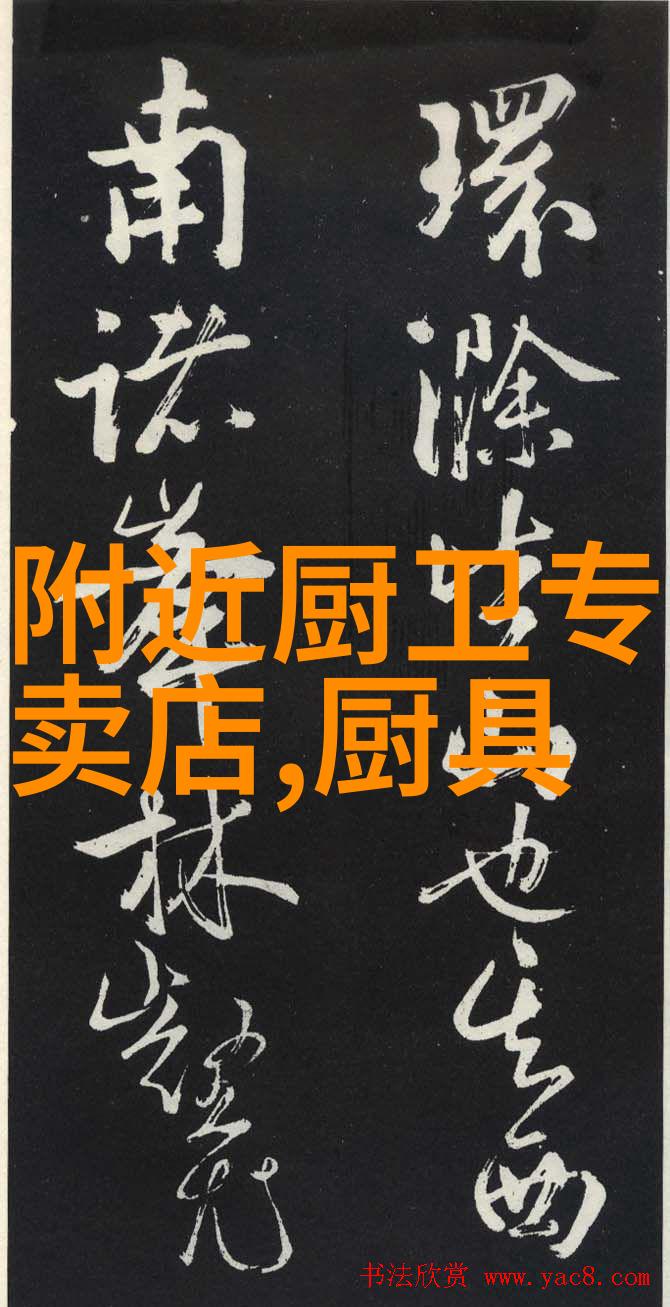 環滁皆山也其西
南諸峯林壑尤
附近厨卫专
卖店,厨具
书法欣赏 www.yac8.com